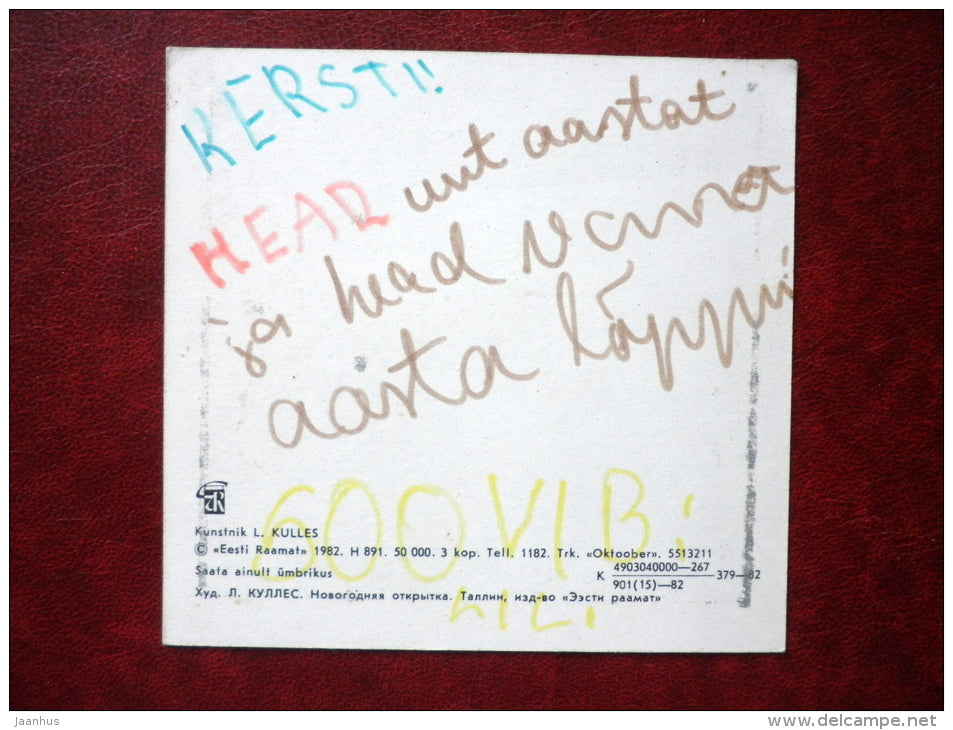 KERSTI!!
HEAD uut aastat
ja head vana
aasta lõppu
SOOVIB:
LILI
Kunstnik L. KULLES
© «Eesti Raamat» 1982. H 891. 50 000. 3 kop. Tell. 1182. Trk. «Oktoober». 5513211
Saata ainult ümbrikus
К 4903040000—267
901(15)—82 379—82
Худ. Л. КУЛЛЕС. Новогодняя открытка. Таллин, изд-во «Ээсти раамат»
Jaanhus
www.delcampe.net